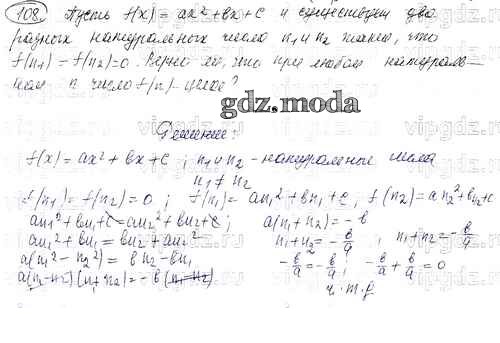 108. Пусть f(x) = ax² + bx + c и существуют два
разных натуральных числа n₁ и n₂ такие, что
f(n₁) = f(n₂) = 0. Верно ли, что при любом натураль-
ном n число f(n) - целое?
gdz.moda
Решение:
f(x) = ax² + bx + c ; n₁ и n₂ - натуральные числа
n₁ ≠ n₂
f(n₁) = f(n₂) = 0 ; f(n₁) = an₁² + bn₁ + c, f(n₂) = an₂² + bn₂ + c
an₁² + bn₁ + c = an₂² + bn₂ + c ; a(n₁ + n₂) = -b
an₁² + bn₁ = bn₂ + an₂² n₁ + n₂ = -b/a ; n₁ + n₂ = -b/a
a(n₁² - n₂²) = bn₂ - bn₁ -b/a = -b/a ; -b/a + b/a = 0
a(n₁ - n₂)(n₁ + n₂) = -b(n₁ - n₂) ч.т.д